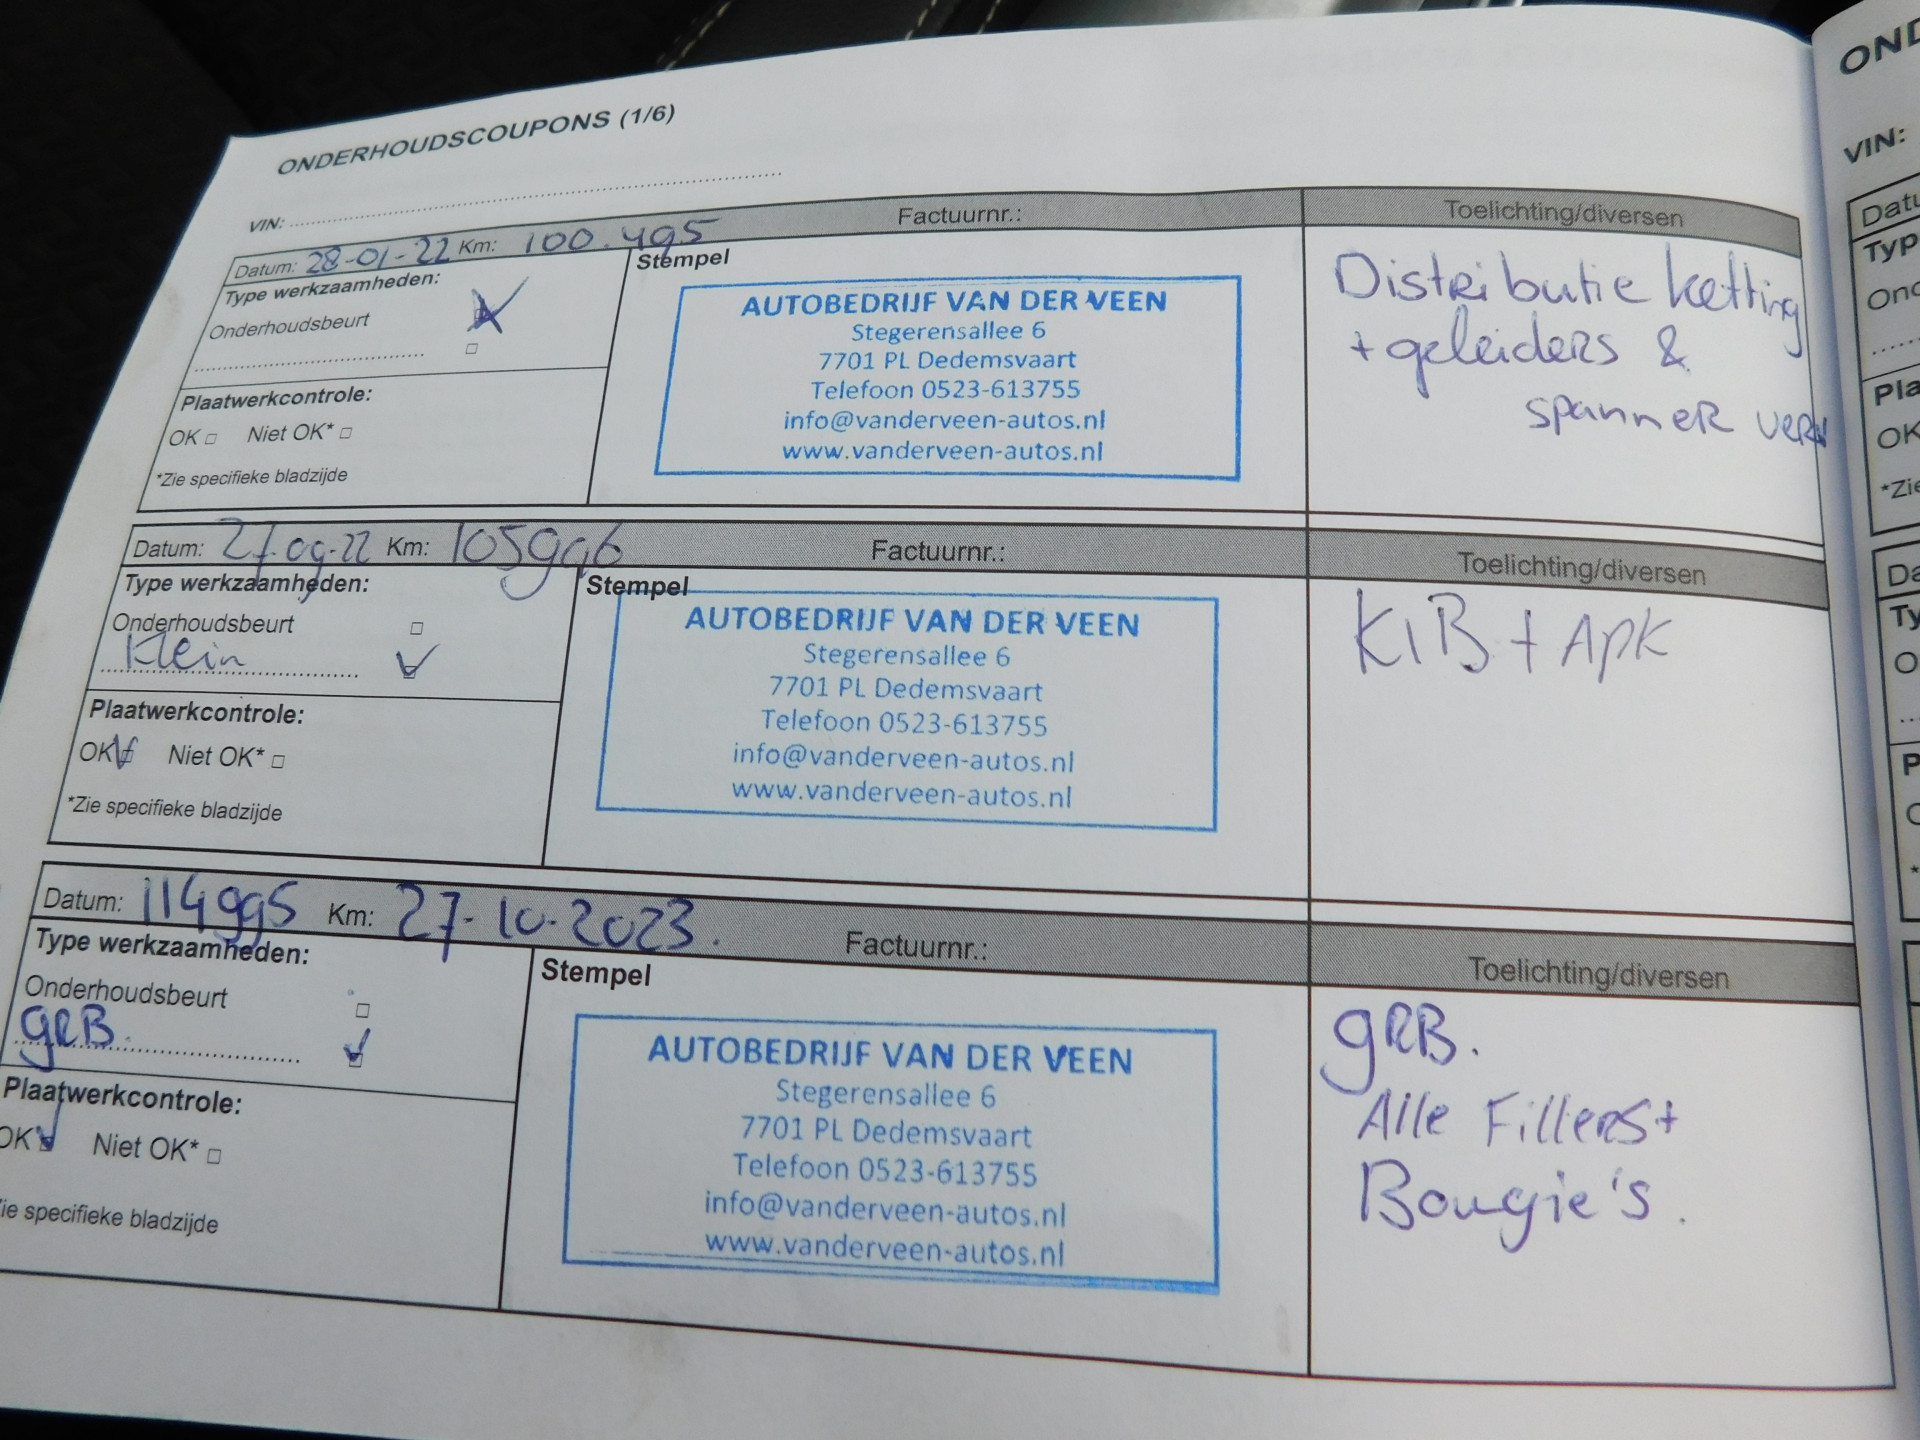 ONDERHOUDSCOUPONS (1/6)
VIN:
Datum: 28-01-22 Km: 100.495 Factuurnr.: Toelichting/diversen
Type werkzaamheden:
Onderhoudsbeurt
Plaatwerkcontrole:
OK Niet OK*
*Zie specifieke bladzijde
Stempel
AUTOBEDRIJF VAN DER VEEN
Stegerensallee 6
7701 PL Dedemsvaart
Telefoon 0523-613755
info@vanderveen-autos.nl
www.vanderveen-autos.nl
Distributie ketting
+ geleiders &
spanner verv
Datum: 27-09-22 Km: 105996 Factuurnr.: Toelichting/diversen
Type werkzaamheden:
Onderhoudsbeurt
Klein
Plaatwerkcontrole:
OK Niet OK*
*Zie specifieke bladzijde
Stempel
AUTOBEDRIJF VAN DER VEEN
Stegerensallee 6
7701 PL Dedemsvaart
Telefoon 0523-613755
info@vanderveen-autos.nl
www.vanderveen-autos.nl
KlB + Apk
Datum: 114995 Km: 27-10-2023. Factuurnr.: Toelichting/diversen
Type werkzaamheden:
Onderhoudsbeurt
gRB.
Plaatwerkcontrole:
OK Niet OK*
ie specifieke bladzijde
Stempel
AUTOBEDRIJF VAN DER VEEN
Stegerensallee 6
7701 PL Dedemsvaart
Telefoon 0523-613755
info@vanderveen-autos.nl
www.vanderveen-autos.nl
gRB.
Alle Fillers +
Bougie's.
OND
VIN:
Datu
Typ
Ond
Pla
OK
*Zie
Da
Ty
O
P